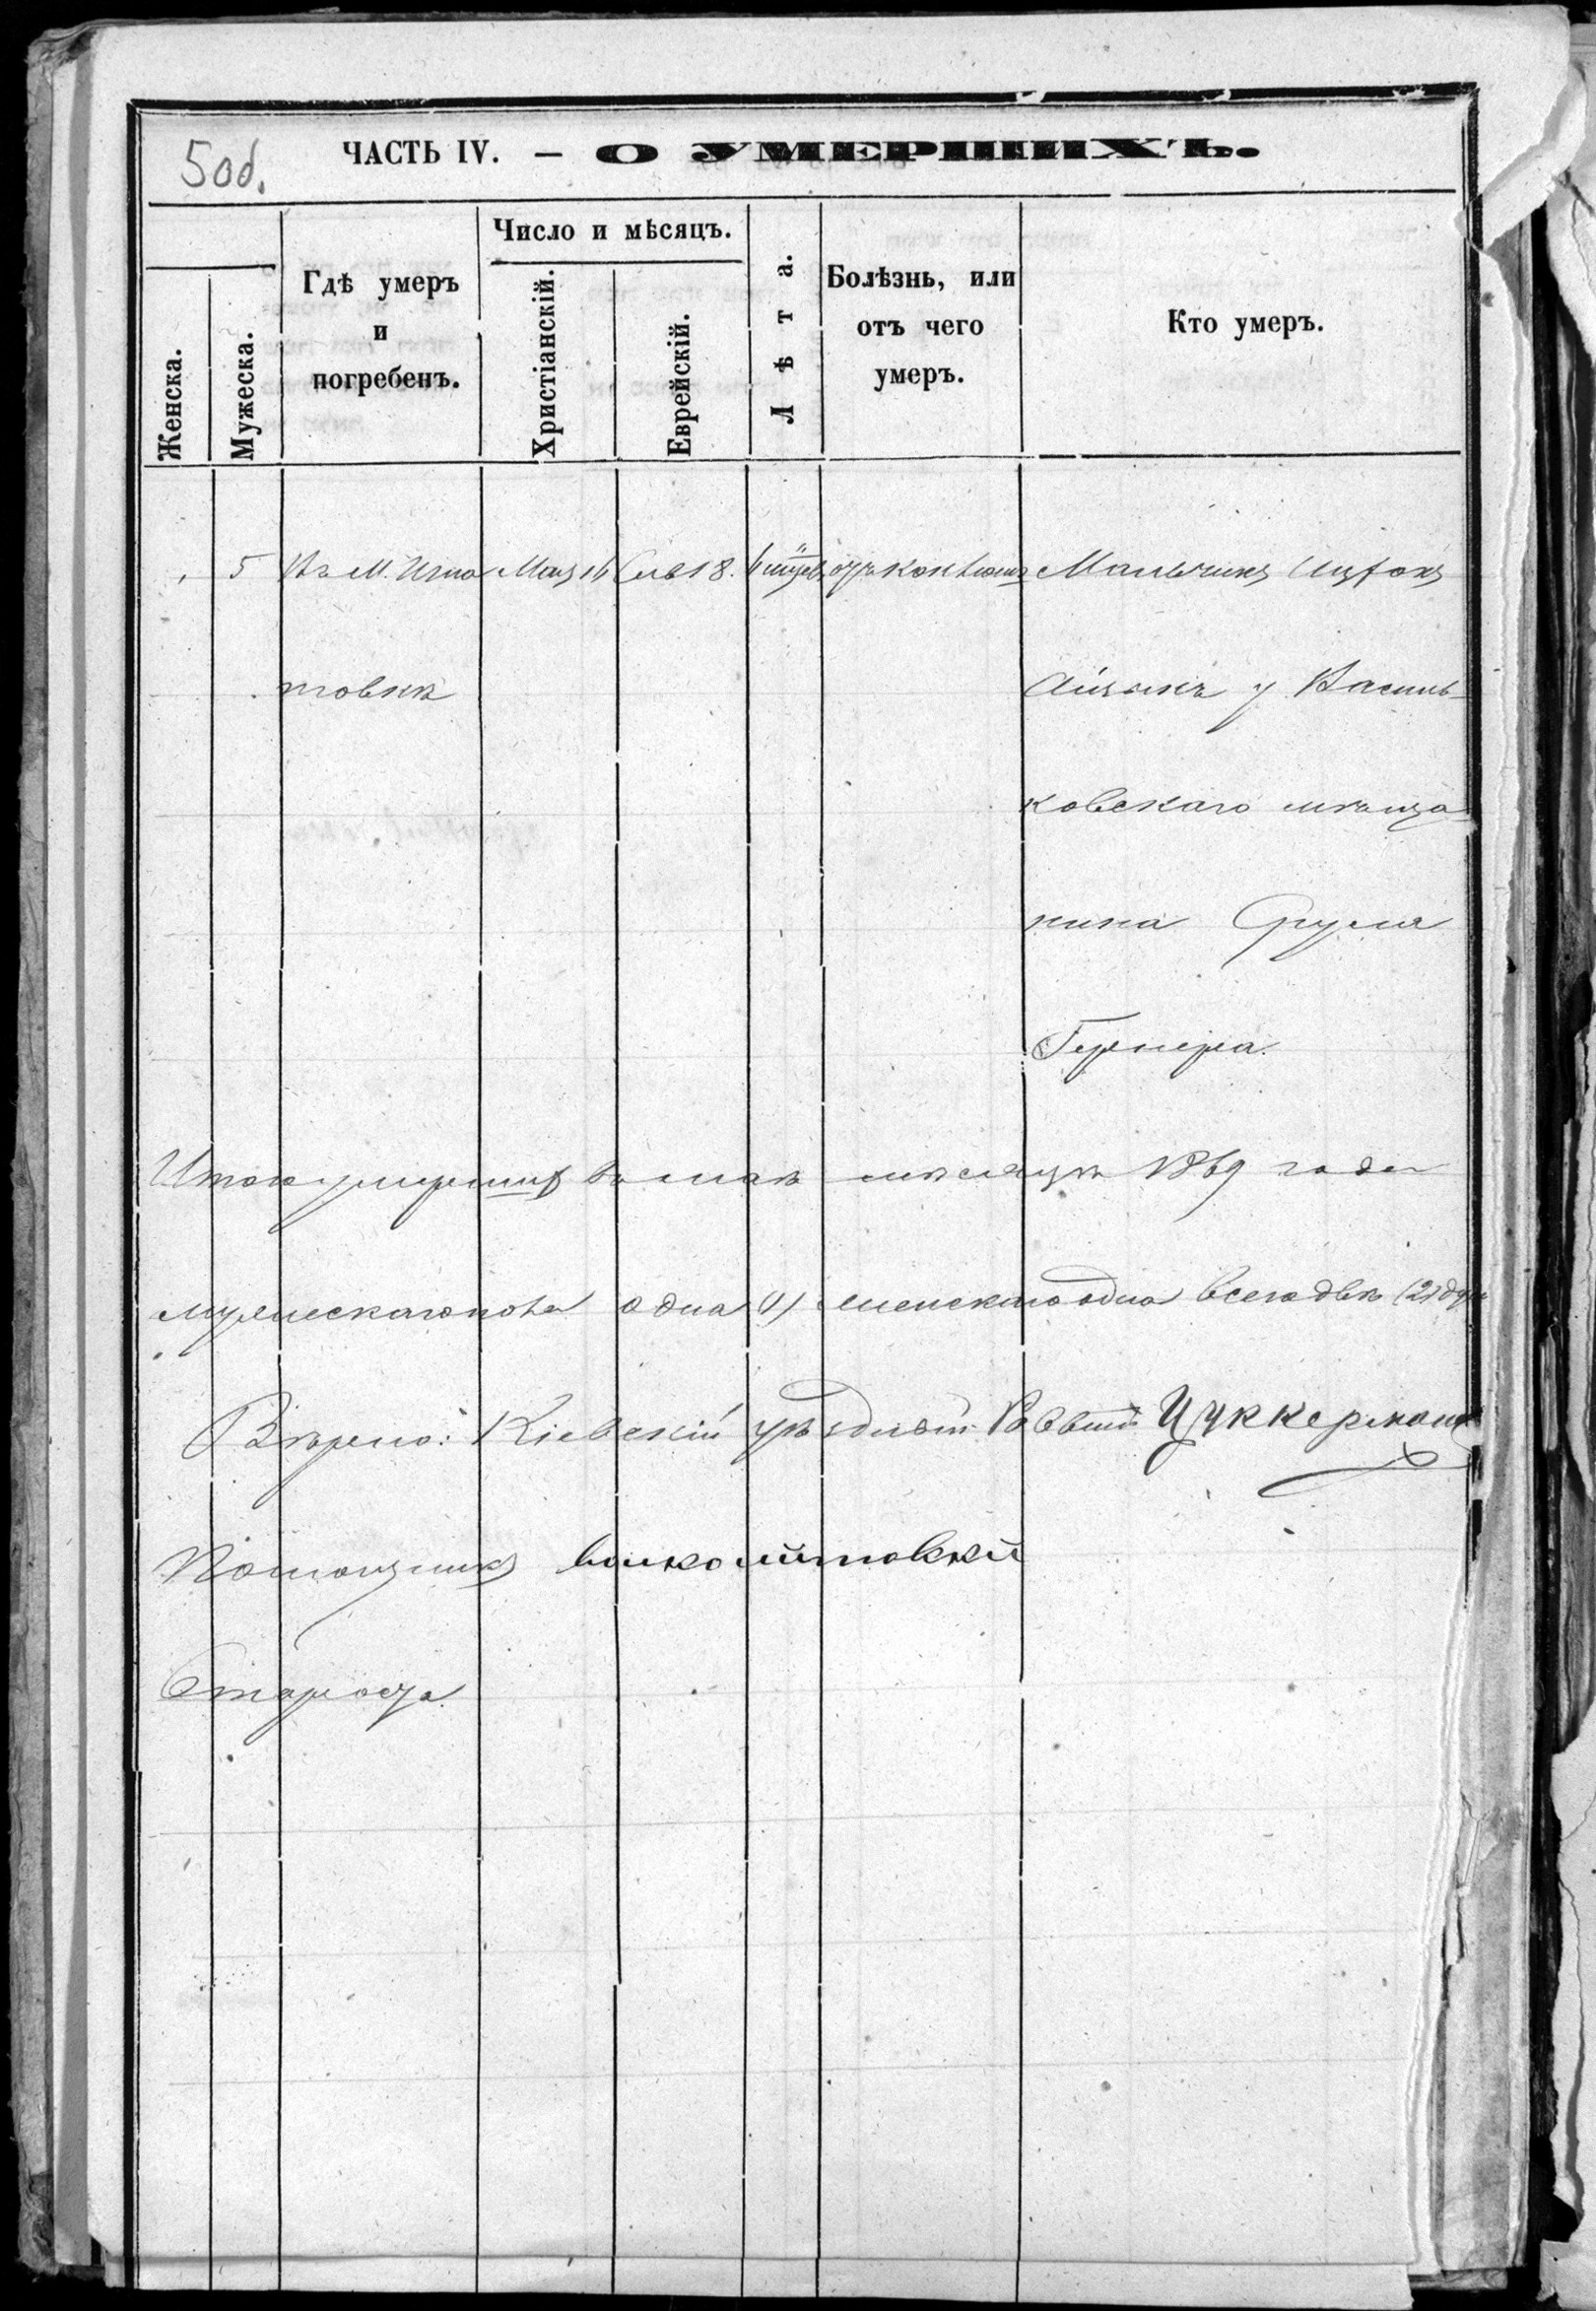 5 об.
ЧАСТЬ IV. — О УМЕРШИХЪ.
Женска.
Мужеска.
Гдѣ умеръ
и
погребенъ.
Число и мѣсяцъ.
Христіанскій.
Еврейскій.
Лѣта.
Болѣзнь, или
отъ чего
умеръ.
Кто умеръ.
5 Въ М. Игна Мая 16 18. 6 отъ конвюлш Мальчикъ Ицхокъ
товкѣ Айзикъ у Василь-
ковскаго мѣща-
нина Сруля
Гернера.
Итого умершихъ въ маѣ мѣсяцѣ 1869 года
мужескаго пола одна (1) женскаго одна всего двѣ (2) душ
Вѣрно: Кіевскій уѣздный Раввинъ Цуккерманъ
Помощникъ
Староста